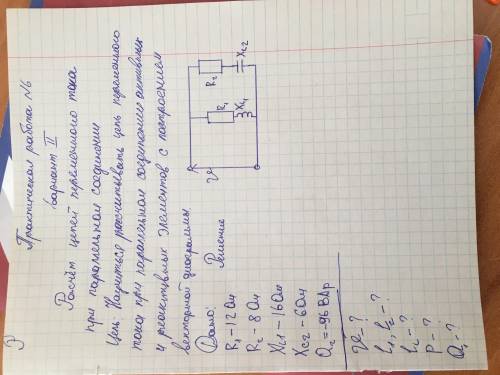 Практическая работа №6
вариант II
Расчёт цепей переменного тока
при параллельном соединении
Цель: Научиться рассчитывать цепь переменного
тока при параллельном соединении активных
и реактивных элементов с построением
векторной диаграммы
Дано: Решение
R1-12 Ом
R2-8 Ом
XL1-16 Ом
XC2-6 Ом
Q2=-96 ВАр
U-?
I1, I2-?
P-?
Q1-?
U
R1
XL1
R2
XC2